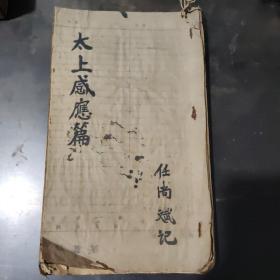 太上感應篇
任尚斌记